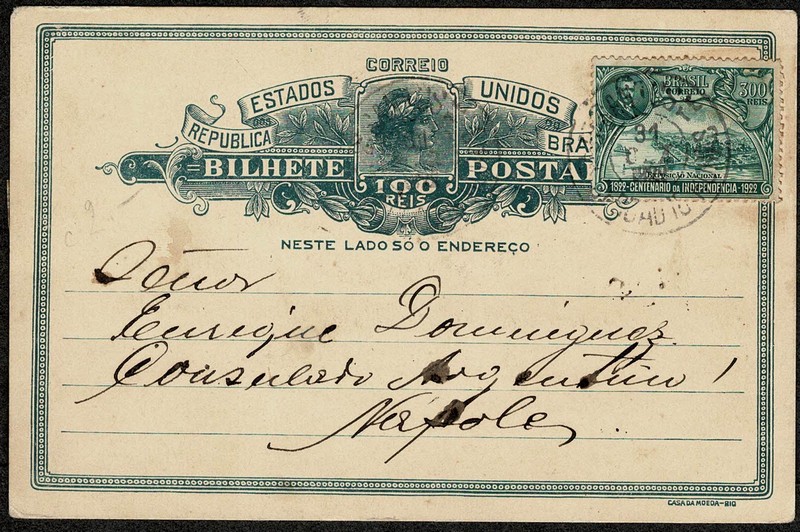 CORREIO
ESTADOS UNIDOS
REPUBLICA DOS DO BRA
BILHETE POSTAL
100
REIS
BRASIL
CORREIO
300
REIS
EXPOSIÇÃO NACIONAL
1822-CENTENARIO DA INDEPENDENCIA-1922
31
23
NESTE LADO SÓ O ENDEREÇO
Señor
Enrique Dominguez
Consulado Argentino
Nápoles
CASA DA MOEDA-RIO